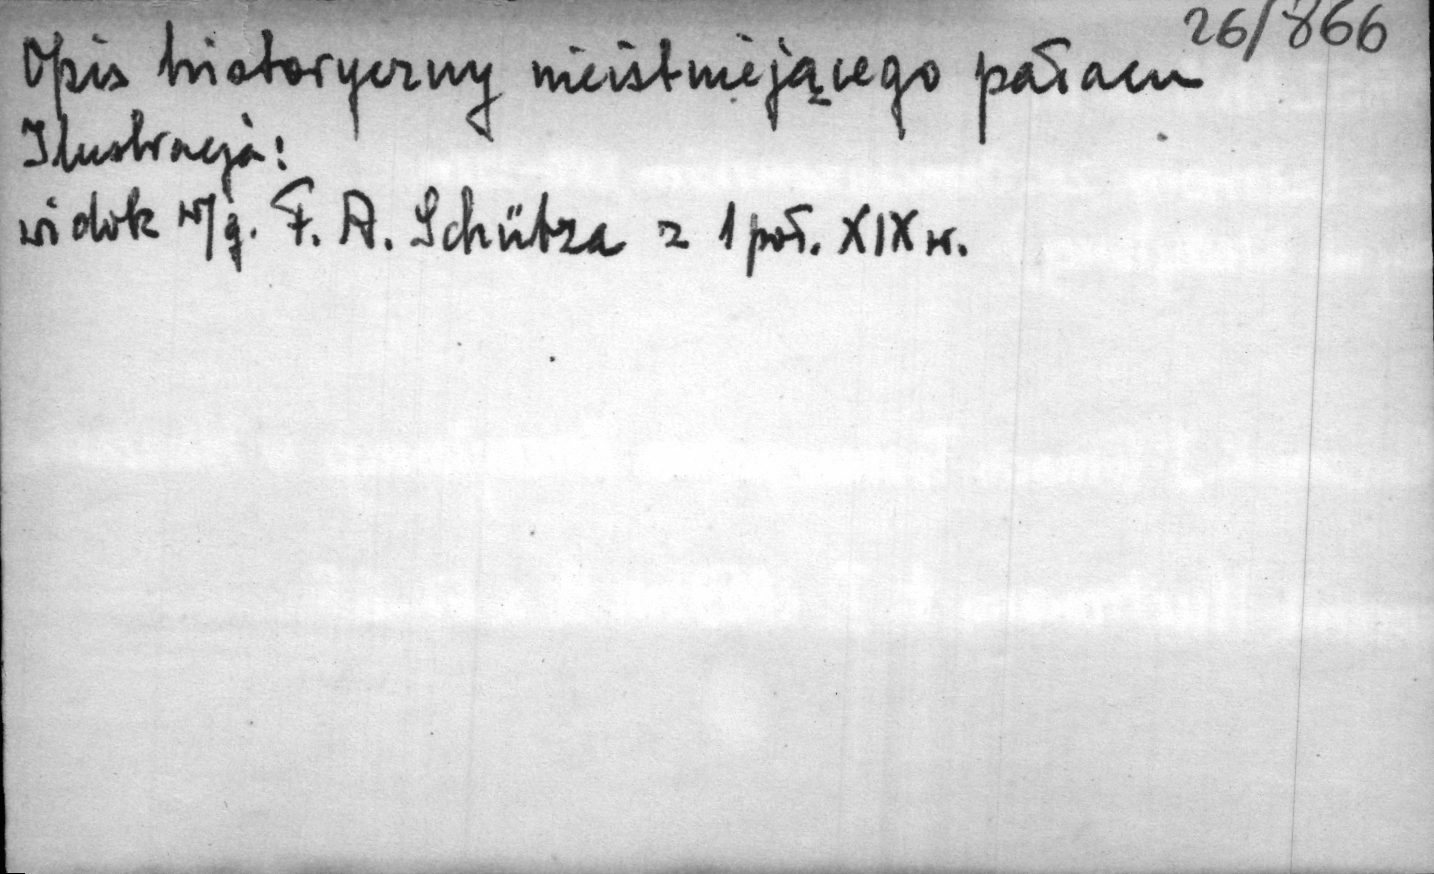 26/866
Opis historyczny nieistniejącego pałacu
Ilustracja:
widok w/g. F. A. Schütza z 1 poł. XIX w.